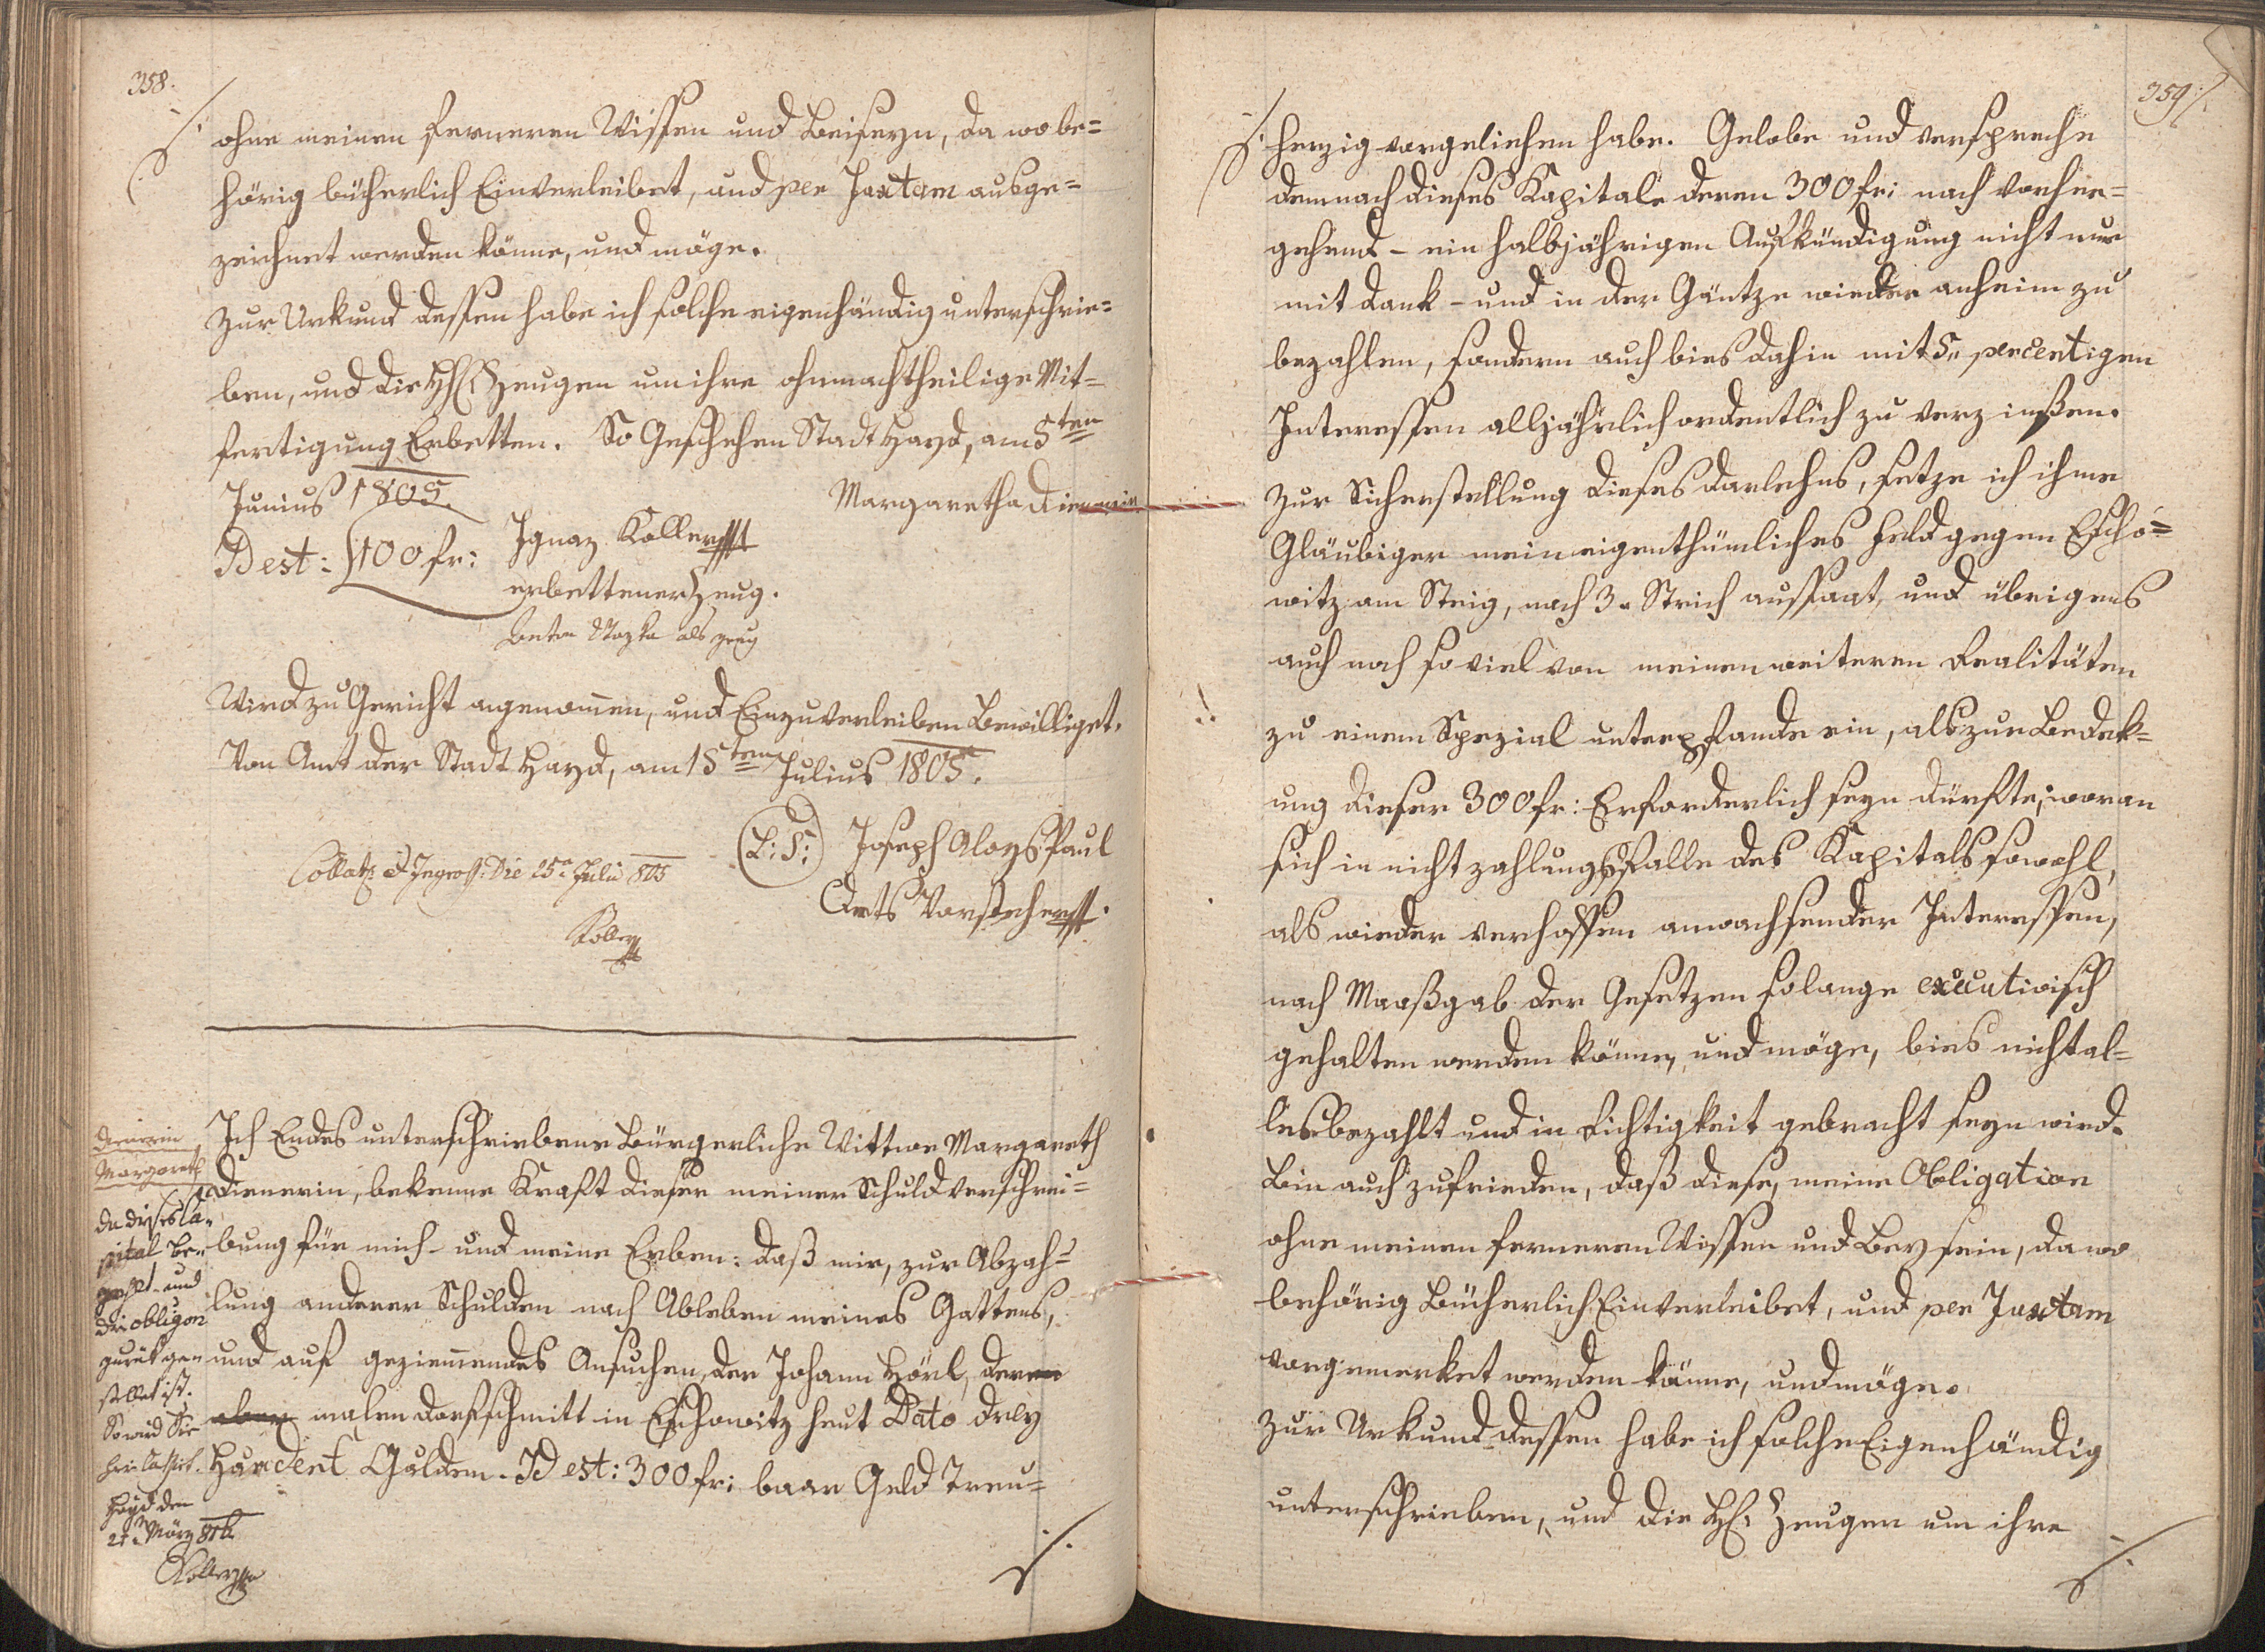 358.
ohne meinen ferneren Wissen und Beiseyn, da wo be=
hörig bücherlich Einverleibet, und per Juxtam ausge=
zeichnet werden könne, und möge.
Zur Urkund dessen habe ich solche eigenhändig unterschrie=
ben, und die HH. Zeugen um ihre ohnnachtheilige Mit=
fertigung Erbetten. So Geschehen Stadt Hayd, am 5ten
Junius 1805.
Margaretha Dienerin
Id est: 100 fr:
Ignaz Koller
erbettener Zeug.
als zeug
Wird zu Gericht agenomen, und Einzuverleiben Bewilliget.
Von Amt der Stadt Hayd, am 15ten Julius 1805.
(L: S:) Joseph Aloys Paul
Amts Vorsteher
Collat: et Ingross: Die 25a Julii 805
Koller
Dienerin
Margareth
da dieses Ca=
pital be=
zahlt und
die obligon
zurük ge=
stellet ist.
So wird Sie
hier Cassirt.
Hayd den
21 März
Koller
Ich Endes unterschriebene Bürgerliche Wittwe Margareth
Dienerin, bekenne Kraft dieser meiner Schuldverschrei=
bung für mich und meine Erben: daß mir, zur Abzah=
lung anderer Schulden nach Ableben meines Gattens,
und auf geziemendes Ansuchen, der Johann Hörl, deren
malen Dorfschmitt in Eschowitz heut Dato drey
Hundert Gulden. Id est: 300 fr: baar Geld treu=
359
herzig vorgeliehen habe. Gelobe und verspreche
demnach dieses Kapitale deren 300 fr: nach vorher=
gehend - ein halbjährigen Aufkündigung nicht nur
mit Dank - und in der Gäntze wieder anheim zu
bezahlen, sondern auch bies dahin mit 5" percentigen
Interessen alljährlich ordentlich zu verzinßen.
Zur Sicherstellung dieses Darlehns, setze ich ihme
Gläubiger mein eigenthümliches Feld gegen Escho=
witz am Steig, nach 3. Strich aussaat, und übrigens
auch noch so viel von meinen weiteren Realitäten
zu einem Spezial unterpfande ein, als zur Bedek=
ung dieser 300 fr: Erforderlich seyn dürfte; woran
sich in nicht zahlungsfalle des Kapitals sowohl,
als wieder verhoffen anwachsender Interessen,
nach Maaßgab der Gesetzen solange executivisch
gehalten werden könne, und möge, bies nicht al=
les bezahlt und in Richtigkeit gebracht seyn wird.
Bin auch zufrieden, daß diese, meine Obligation
ohne meinen ferneren Wissen und Beysein, da wo
behörig Bücherlich Einverleibet, und per Juxtam
vorgemerket werden könne, und möge.
Zur Urkund dessen habe ich solche Eigenhändig
unterschrieben, und die HH. Zeugen um ihre